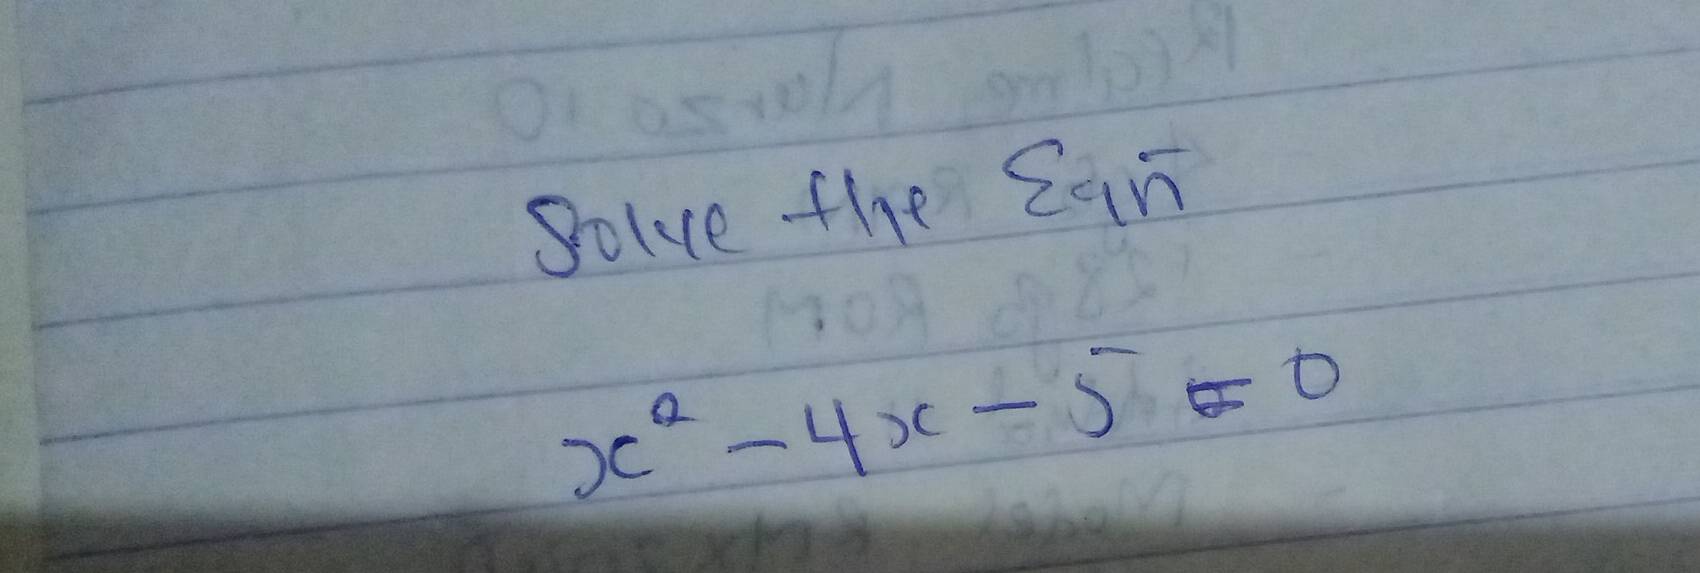 Solve the Eqn̄
x² - 4x - 5 = 0